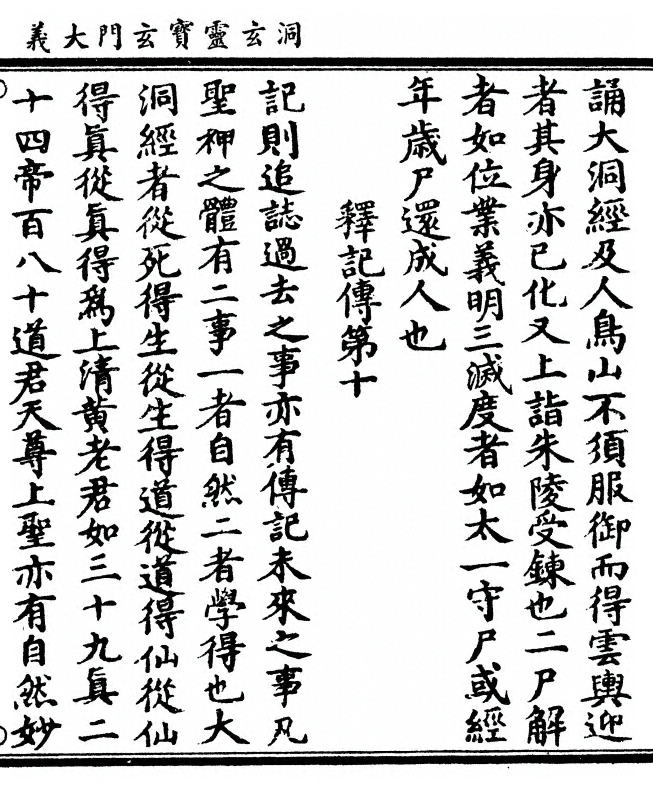 洞玄靈寶玄門大義
誦大洞經及人鳥山不須服御而得雲輿迎
者其身亦已化又上詣朱陵受鍊也二尸解
者如位業義明三滅度者如太一守尸或經
年歲尸還成人也
釋記傳第十
記則追誌過去之事亦有傳記未來之事凡
聖神之體有二事一者自然二者學得也大
洞經者從死得生從生得道從道得仙從仙
得眞從眞得爲上清黃老君如三十九眞二
十四帝百八十道君天尊上聖亦有自然妙